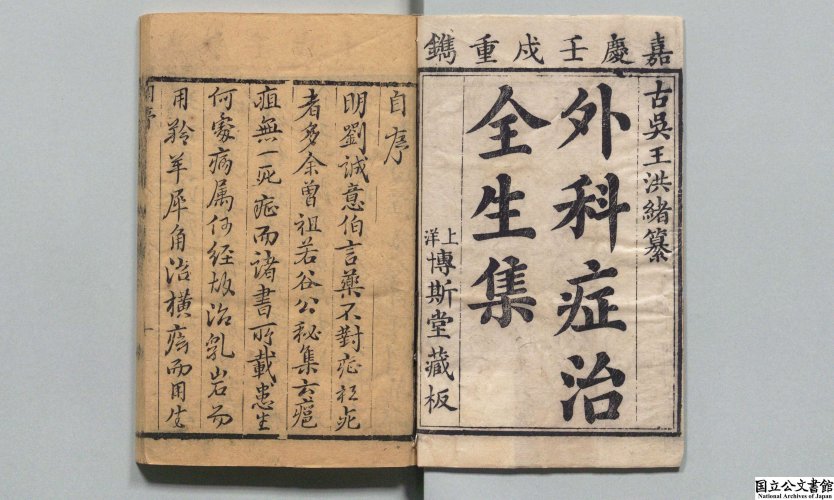 嘉慶壬戌重鐫
古吳王洪緒纂
外科症治
全生集
上洋博斯堂藏板
自序
明劉誠意伯言藥不對症枉死
者多余曾祖若谷公秘集云癰
疽無一死症而諸書所載患生
何處病属何经故治乳岩而
用羚羊犀角治橫痃而用生
自序
国立公文書館
National Archives of Japan